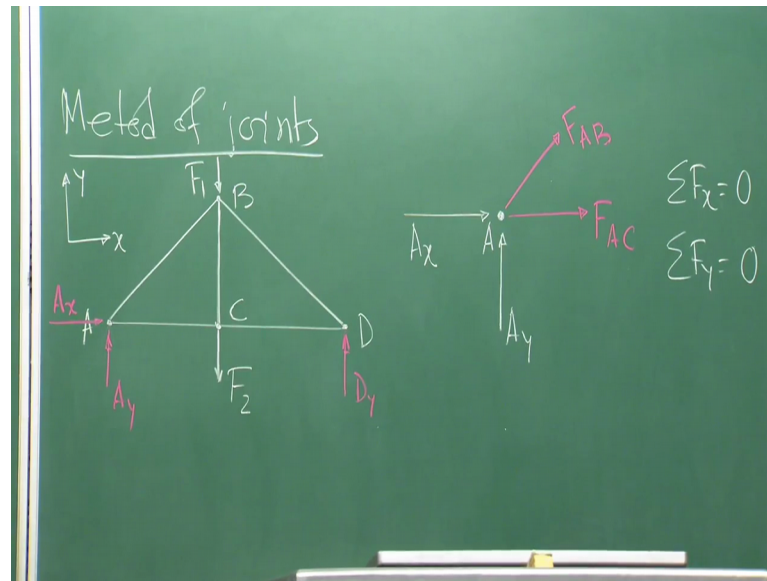 Metod of joints
Y
X
F₁
B
Ax
A
C
D
Ay
F₂
Dy
F_AB
F_AC
Ax
A
Ay
ΣFx = 0
ΣFy = 0